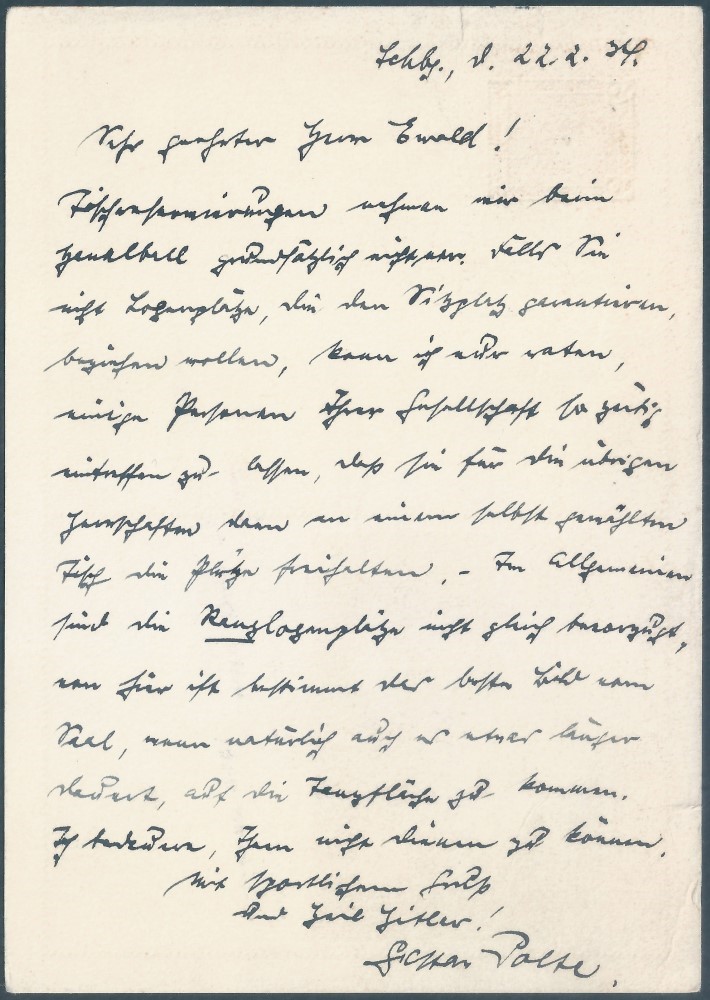 Schbg., d. 22.2.34.
Sehr geehrter Herr Ewald!
Tischreservierungen nehmen wir beim
grundsätzlich nicht vor. Falls Sie
nicht Logenplätze, die den Sitzplatz garantieren,
beziehen wollen, kann ich nur raten,
einige Personen Ihrer Gesellschaft so zeitig
eintreffen zu lassen, daß sie für die übrigen
Herrschaften dann an einem selbst gewählten
Tisch die Plätze freihalten. - Im Allgemeinen
sind die Ranglogenplätze nicht gleich bevorzugt,
von hier ist bestimmt das beste Bild vom
Saal, wenn natürlich auch es etwas länger
dauert, auf die Tanzfläche zu kommen.
Ich bedauere, Ihnen nicht dienen zu können.
Mit sportlichem Gruß
und Heil Hitler!
Gustav Polte.